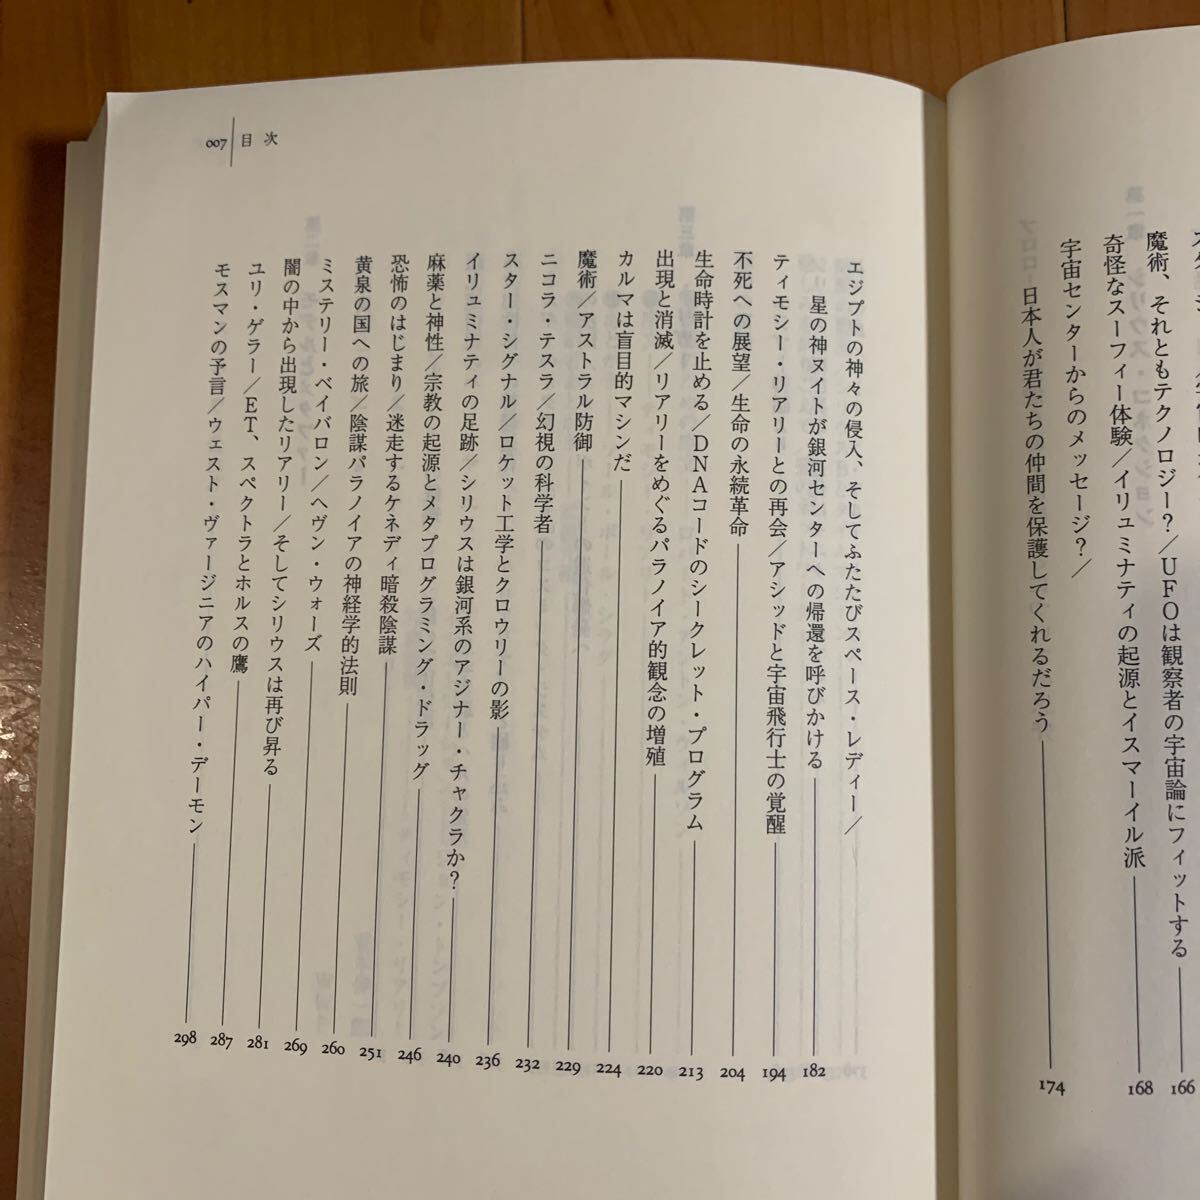 魔術、それともテクノロジー?/UFOは観察者の宇宙論にフィットする 166
奇怪なスーフィー体験/イリュミナティの起源とイスマーイル派 168
宇宙センターからのメッセージ?/
日本人が君たちの仲間を保護してくれるだろう 174
007 目次
エジプトの神々の侵入、そしてふたたびスペース・レディー/
星の神ヌイトが銀河センターへの帰還を呼びかける 182
ティモシー・リアリーとの再会/アシッドと宇宙飛行士の覚醒 194
不死への展望/生命の永続革命 204
生命時計を止める/DNAコードのシークレット・プログラム 213
出現と消滅/リアリーをめぐるパラノイア的観念の増殖 220
カルマは盲目的マシンだ 224
魔術/アストラル防御 229
ニコラ・テスラ/幻視の科学者 232
スター・シグナル/ロケット工学とクロウリーの影 236
イリュミナティの足跡/シリウスは銀河系のアジナー・チャクラか? 240
麻薬と神性/宗教の起源とメタプログラミング・ドラッグ 246
恐怖のはじまり/迷走するケネディ暗殺陰謀 251
黄泉の国への旅/陰謀パラノイアの神経学的法則 260
ミステリー・ベイバロン/ヘヴン・ウォーズ 269
闇の中から出現したリアリー/そしてシリウスは再び昇る 281
ユリ・ゲラー/ET、スペクトラとホルスの鷹 287
モスマンの予言/ウェスト・ヴァージニアのハイパー・デーモン 298